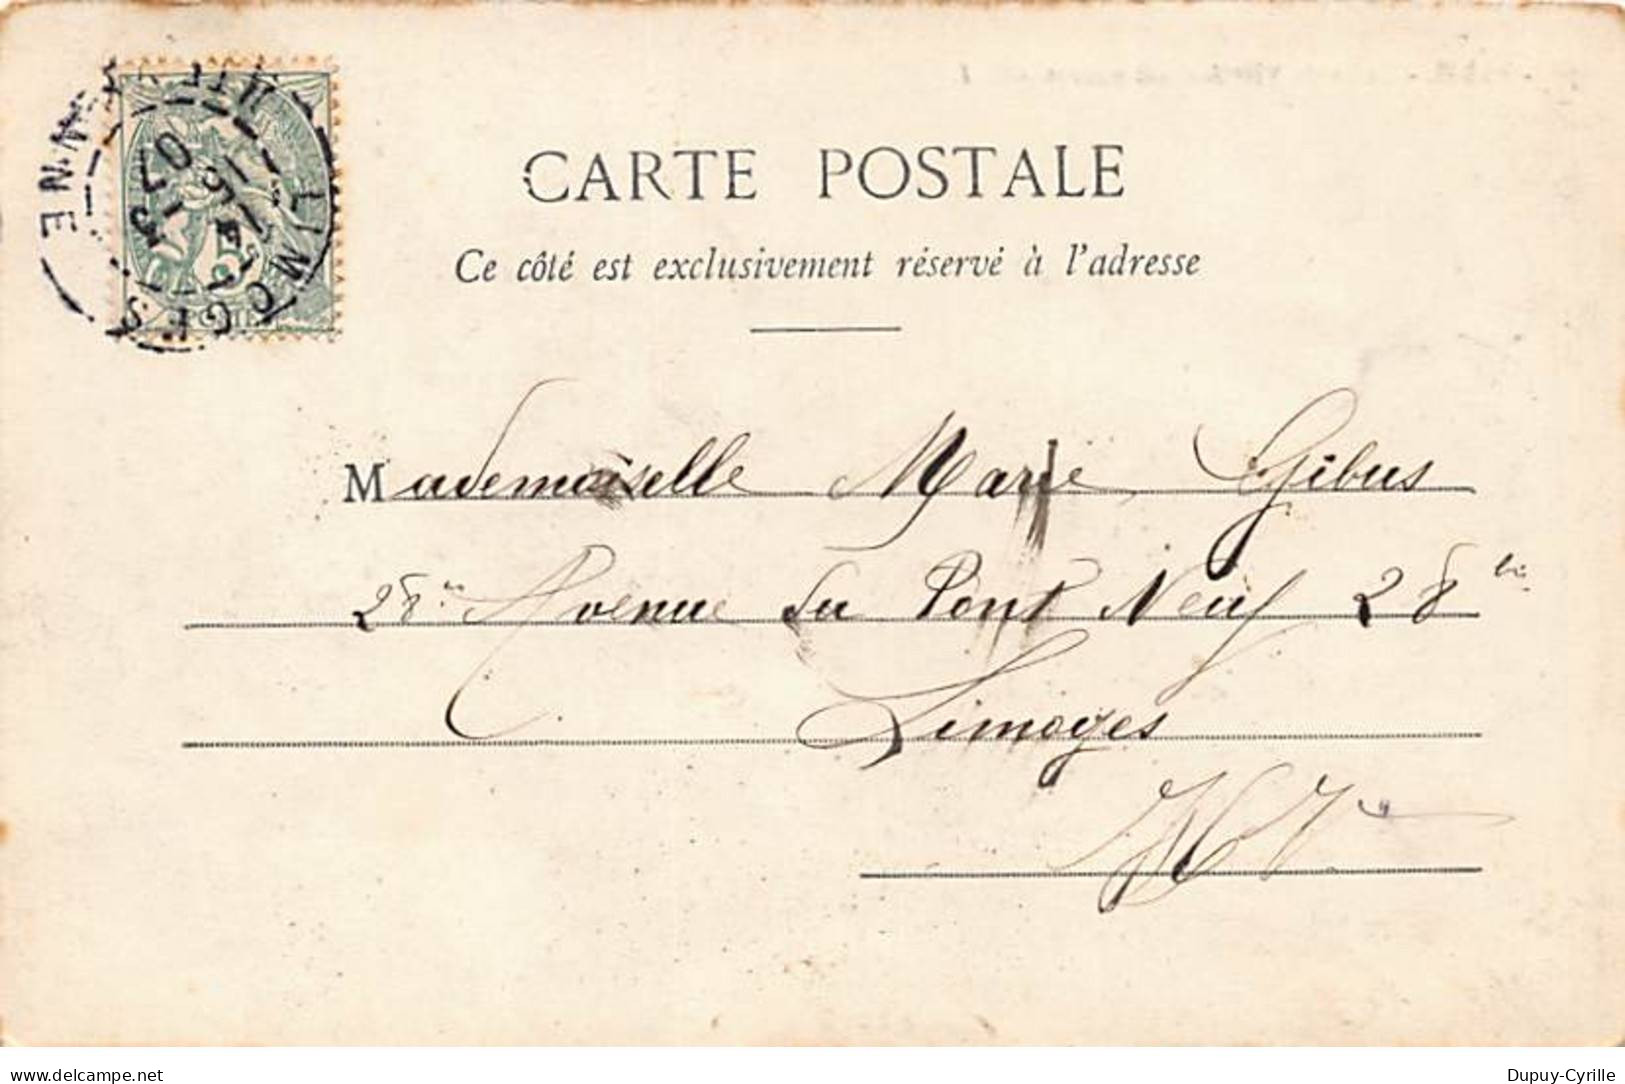 LIMOGES
HTE VIENNE
15
13 - 1
07
5
POSTE
CARTE POSTALE
Ce côté est exclusivement réservé à l'adresse
Mademoiselle Marie Gibus
28 bis Avenue du Pont Neuf 28 bis
Limoges
H V
delcampe.net
Dupuy-Cyrille